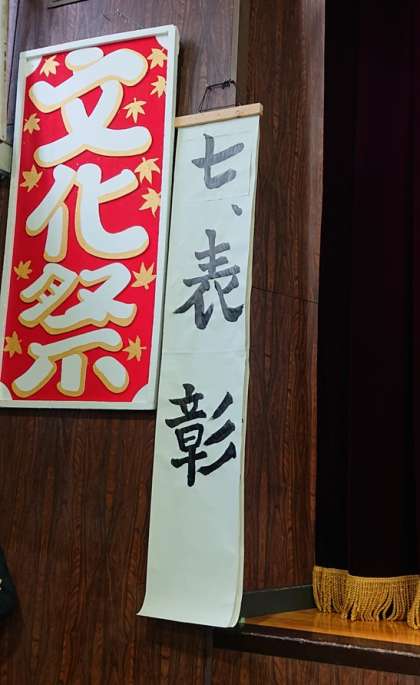 文化祭
七、表彰